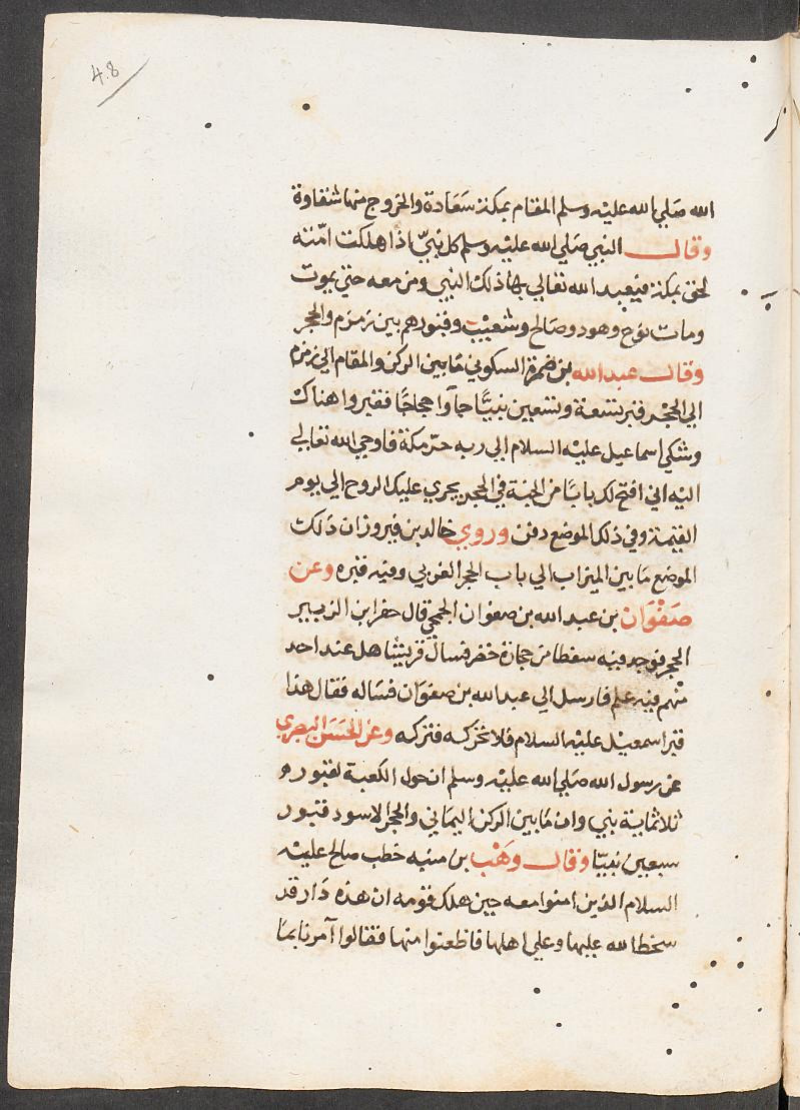 48
الله صلي الله عليه وسلم المقام بمكة سعادة والخروج منها شقاوة
وقال النبي صلي الله عليه وسلم كل نبيّ اذا هلكت امّته
لحق بمكة فيعبد الله تعالي بها ذلك النبي ومن معه حتي يموت
ومات نوح وهود وصالح وشعيب وقبورهم بين زمزم والحجر
وقال عبد الله بن ضمرة السكوني ما بين الركن والمقام الي زمزم
الي الحجر قبر تسعة وتسعين نبيّا جآوا حجاجًا فقبروا هناك
وشكي اسماعيل عليه السلام الي ربه حرّ مكة فاوحي الله تعالي
اليه اني افتح لك بابًا من الجنة في الحجر يجري عليك الروح الي يوم
القيمة وفي ذلك الموضع دفن وروي خالد بن فيروز ان ذلك
الموضع ما بين الميزاب الي باب الحجر الغربي وفيه قبره وعن
صفوان بن عبد الله بن صفوان الجمحي قال حفر ابن الزبير
الحجر فوجد فيه سفطا من حجارة خضر فسال قريشا هل عند احد
منهم فيه علم فارسل الي عبد الله بن صفوان فساله فقال هذا
قبر اسمعيل عليه السلام فلا تحركه فتركه وعن الحسن البصري
عن رسول الله صلي الله عليه وسلم ان حول الكعبة لقبور
ثلاثماية نبي وان ما بين الركن اليماني والحجر الاسود قبور
سبعين نبيّا وقال وهب بن منبه خطب صالح عليه
السلام الذين امنوا معه حين هلك قومه ان هذه دار قد
سخط الله عليها وعلي اهلها فاظعنوا منها فقالوا آمرنا بما